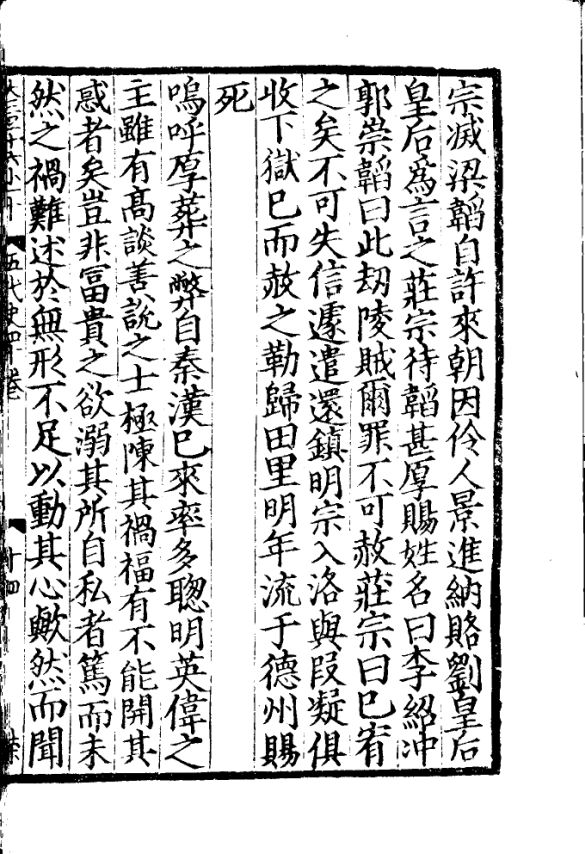 宗滅梁韜自許來朝因伶人景進納賂劉皇后
皇后爲言之莊宗待韜甚厚賜姓名曰李紹冲
郭崇韜曰此刼陵賊爾罪不可赦莊宗曰已宥
之矣不可失信遽遣還鎮明宗入洛與段凝俱
收下獄已而赦之勒歸田里明年流于德州賜
死
嗚呼厚葬之弊自秦漢已來率多聦明英偉之
主雖有髙談善説之士極陳其禍福有不能開其
惑者矣豈非富貴之欲溺其所自私者篤而未
然之禍難述於無形不足以動其心歟然而聞
五代史四十卷
十四